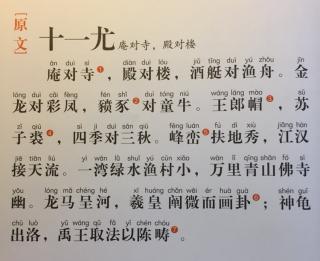 [原文] 十一尤 庵对寺，殿对楼
ān duì sì diàn duì lóu jiǔ tǐng duì yú zhōu jīn
庵对寺①，殿对楼，酒艇对渔舟。金
lóng duì cǎi fèng fén shǐ duì tóng niú wáng láng mào sū
龙对彩凤，豮豕②对童牛。王郎帽③，苏
zǐ qiú sì jì duì sān qiū fēng luán fú dì xiù jiāng hàn
子裘④，四季对三秋。峰峦⑤扶地秀，江汉
jiē tiān liú yì wān lǜ shuǐ yú cūn xiǎo wàn lǐ qīng shān fó sì
接天流。一湾绿水渔村小，万里青山佛寺
yōu lóng mǎ chéng hé xī huáng chǎn wēi ér huà guà shén guī
幽。龙马呈河，羲皇阐微而画卦⑥；神龟
chū luò yǔ wáng qǔ fǎ yǐ chén chóu
出洛，禹王取法以陈畴⑦。